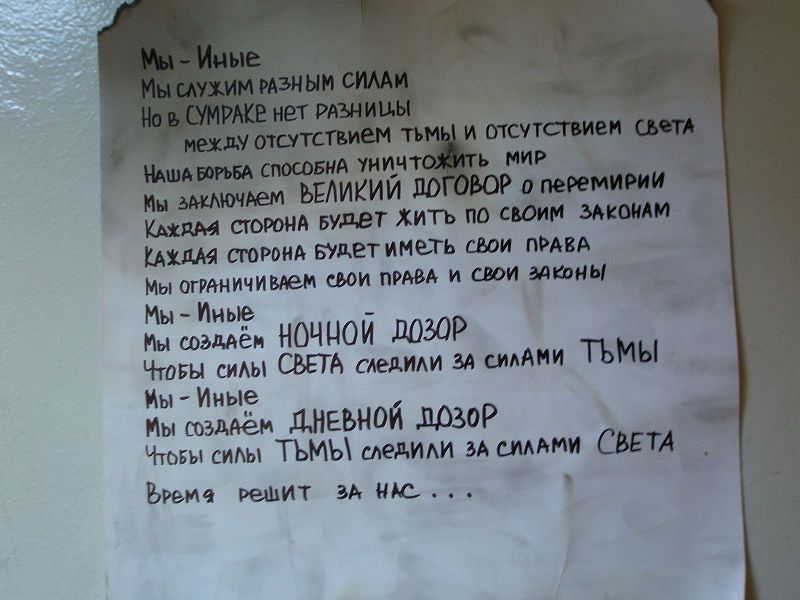 Мы - Иные
Мы служим разным силам
Но в СУМРАКЕ нет разницы
между отсутствием тьмы и отсутствием света
Наша борьба способна уничтожить мир
Мы заключаем ВЕЛИКИЙ ДОГОВОР о перемирии
Каждая сторона будет жить по своим законам
Каждая сторона будет иметь свои права
Мы ограничиваем свои права и свои законы
Мы - Иные
Мы создаём НОЧНОЙ ДОЗОР
Чтобы силы СВЕТА следили за силами ТЬМЫ
Мы - Иные
Мы создаём ДНЕВНОЙ ДОЗОР
Чтобы силы ТЬМЫ следили за силами СВЕТА
Время решит за нас...